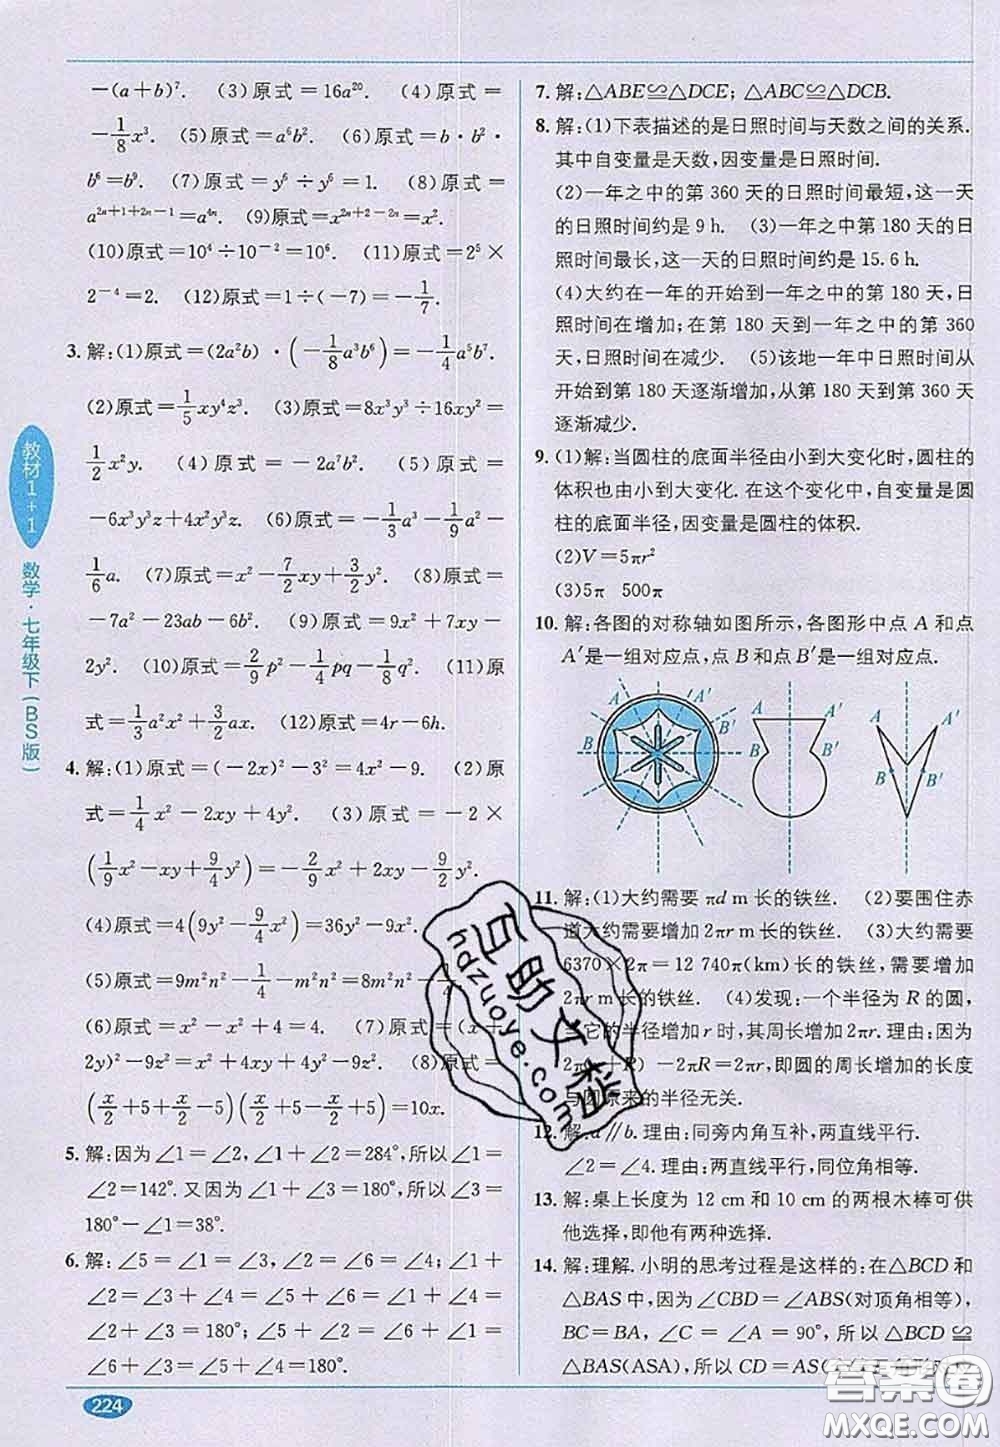 −(a+b)⁷. (3)原式=16a²⁰. (4)原式=
−1/8x³. (5)原式=a⁶b⁶. (6)原式=b·b²·
b⁶=b⁹. (7)原式=y⁶÷y⁶=1. (8)原式=
a²ⁿ⁺¹⁺²ⁿ⁻¹=a⁴ⁿ. (9)原式=x²ⁿ⁺²⁻²ⁿ=x².
(10)原式=10⁴÷10⁻²=10⁶. (11)原式=2⁵×
2⁻⁴=2. (12)原式=1÷(−7)=−1/7.
3. 解:(1)原式=(2a²b)·(−1/8a³b⁶)=−1/4a⁵b⁷.
(2)原式=1/5xy⁴z³. (3)原式=8x³y³÷16xy²=
1/2x²y. (4)原式=−2a⁷b². (5)原式=
−6x³y³z+4x²y²z. (6)原式=−1/3a³−1/2a²−
1/6a. (7)原式=x²−7/2xy+3/2y². (8)原式=
−7a²−23ab−6b². (9)原式=9x²+7xy−
2y². (10)原式=2/9p²−1/4pq−1/8q². (11)原
式=1/3a²x²+3/2ax. (12)原式=4r−6h.
4. 解:(1)原式=(−2x)²−3²=4x²−9. (2)原
式=1/4x²−2xy+4y². (3)原式=−2×
(1/9x²−xy+9/4y²)=−2/9x²+2xy−9/2y².
(4)原式=4(9y²−9/4x²)=36y²−9x².
(5)原式=9m²−1/4−m²−1/4=8m²−1/2.
(6)原式=x²−x²+4=4. (7)原式=(x+
2y)²−9z²=x²+4xy+4y²−9z². (8)原式=
(x/2+5+x/2−5)(x/2+5−x/2+5)=10x.
5. 解:因为∠1=∠2,∠1+∠2=284°,所以∠1=
∠2=142°.又因为∠1+∠3=180°,所以∠3=
180°−∠1=38°.
6. 解:∠5=∠1=∠3,∠2=∠6=∠4;∠1+
∠2=∠3+∠4=∠5+∠6=∠1+∠4=
∠2+∠3=180°;∠5+∠2=∠6+∠1=
∠6+∠3=∠5+∠4=180°.
7. 解:△ABE≌△DCE;△ABC≌△DCB.
8. 解:(1)下表描述的是日照时间与天数之间的关系.
其中自变量是天数,因变量是日照时间.
(2)一年之中的第 360 天的日照时间最短,这一天
的日照时间约是 9 h. (3)一年之中的第 180 天的
日照时间最长,这一天的日照时间约是 15.6 h.
(4)大约在一年的开始到一年之中的第 180 天,日
照时间在增加;在第 180 天到一年之中的第 360
天,日照时间在减少. (5)该地一年中日照时间从
开始到第 180 天逐渐增加,从第 180 天到第 360 天
逐渐减少.
9. (1)解:当圆柱的底面半径由小到大变化时,圆柱的
体积也由小到大变化.在这个变化中,自变量是圆
柱的底面半径,因变量是圆柱的体积.
(2)V=5πr²
(3)5π 500π
10. 解:各图的对称轴如图所示,各图形中点 A 和点
A′是一组对应点,点 B 和点 B′是一组对应点.
A A′ B B′
A A′ B B′
A A′ B B′
11. 解:(1)大约需要 πd m 长的铁丝. (2)要围住赤
道大约需要增加 2πr m 长的铁丝. (3)大约需要
6370×2π=12 740π(km)长的铁丝,需要增加
2πr m 长的铁丝. (4)发现:一个半径为 R 的圆,
当它的半径增加 r 时,其周长增加 2πr.理由:因为
2π(r+R)−2πR=2πr,即圆的周长增加的长度
与圆原来的半径无关.
12. 解:a∥b.理由:同旁内角互补,两直线平行.
∠2=∠4.理由:两直线平行,同位角相等.
13. 解:桌上长度为 12 cm 和 10 cm 的两根木棒可供
他选择,即他有两种选择.
14. 解:理解.小明的思考过程是这样的:在△BCD 和
△BAS 中,因为∠CBD=∠ABS(对顶角相等),
BC=BA,∠C=∠A=90°,所以△BCD≌
△BAS(ASA),所以 CD=AS(全等三角形的对
教材1+1
数学·七年级下(BS版)
224
百助文档
hdzuoye.com
答案圈
MXQE.COM